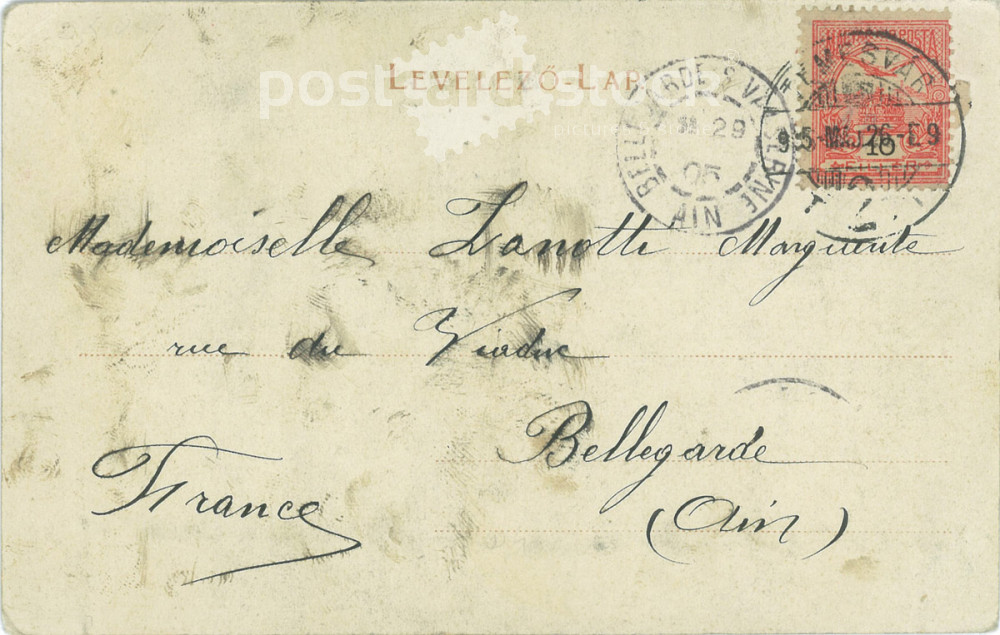 LEVELEZŐ-LAP
postcard.stock
MAGYAR POSTA
BELLEGARDE-S-VALSERINE
29
05
AIN
TEMESVÁR
905 MÁJ 26
10
FILLÉR
Mademoiselle Zanotti Marguerite
rue du Viaduc
Bellegarde
France
(Ain)